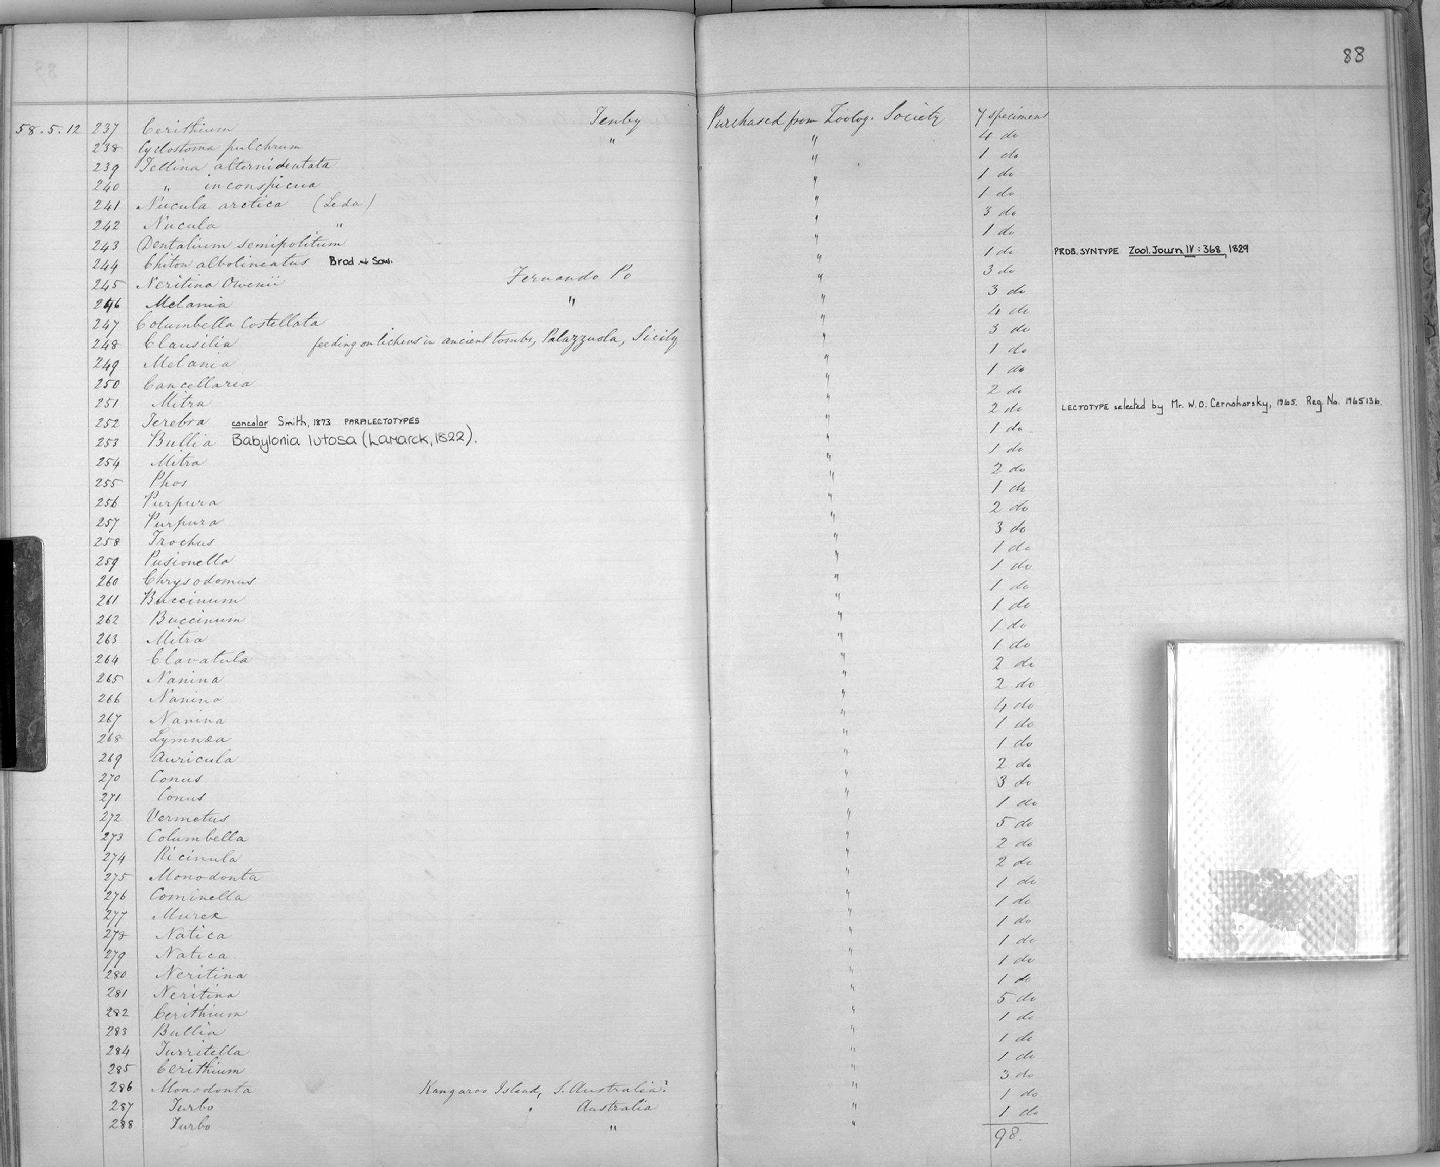 88
58.5.12 237 Cerithium Tenby Purchased from Zoolog. Society 7 specimens
238 Cyclostoma pulchrum " " 4 do
239 Tellina alternidentata " 1 do
240 " inconspicua " 1 do
241 Nucula arctica (Leda) " 1 do
242 Nucula " " 3 do
243 Dentalium semipolitum " 1 do
244 Chiton albolineatus Brod. & Sow. " 1 do PROB. SYNTYPE Zool. Journ. IV : 368, 1829
245 Neritina Owenii Fernando Po " 3 do
246 Melania " " 3 do
247 Columbella Costellata " 4 do
248 Clausilia feeding on lichens in ancient tombs, Palazzuola, Sicily " 3 do
249 Melania " 1 do
250 Cancellaria " 1 do
251 Mitra " 2 do
252 Terebra concolor Smith, 1873 PARALECTOTYPES " 2 do LECTOTYPE selected by Mr. W.O. Cernohorsky, 1965. Reg. No. 1965136.
253 Bullia Babylonia lutosa (Lamarck, 1822). " 1 do
254 Mitra " 1 do
255 Phos " 2 do
256 Purpura " 1 do
257 Purpura " 2 do
258 Trochus " 3 do
259 Pusionella " 1 do
260 Chrysodomus " 1 do
261 Buccinum " 1 do
262 Buccinum " 1 do
263 Mitra " 1 do
264 Clavatula " 1 do
265 Nanina " 2 do
266 Nanina " 2 do
267 Nanina " 4 do
268 Lymnæa " 1 do
269 Auricula " 1 do
270 Conus " 2 do
271 Conus " 3 do
272 Vermetus " 1 do
273 Columbella " 5 do
274 Ricinula " 2 do
275 Monodonta " 2 do
276 Cominella " 1 do
277 Murex " 1 do
278 Natica " 1 do
279 Natica " 1 do
280 Neritina " 1 do
281 Neritina " 1 do
282 Cerithium " 5 do
283 Bullia " 1 do
284 Turritella " 1 do
285 Cerithium " 1 do
286 Monodonta Kangaroo Island, S. Australia? " 3 do
287 Turbo Australia " 1 do
288 Turbo " " 1 do
98.